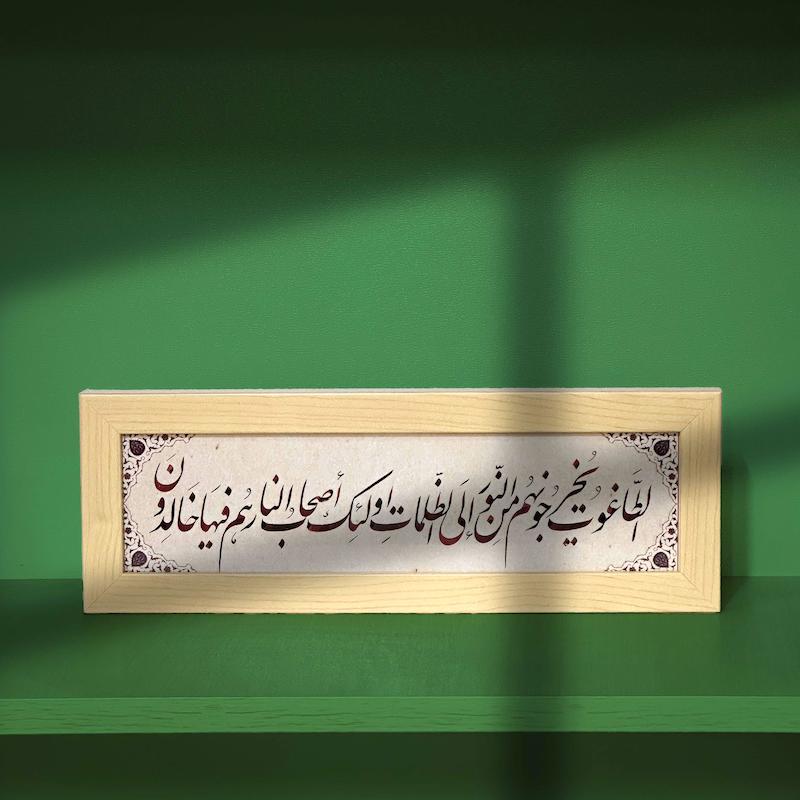 الطّاغوت يُخرجونهم من النّور إلَى الظّلماتِ اولئِك أصحاب النار هُم فيهَا خالِدوُنَ